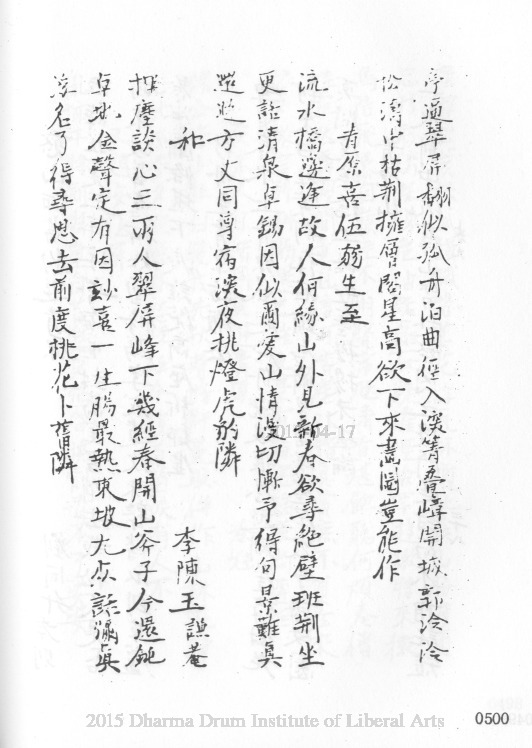 亭通翠屏翻似孤舟泊曲徑入深箐疊嶂開城郭泠泠
松濤中枯荆擁層閣星高欲下來畫圖豈能作
青原喜伍芴生至
流水橋邊逢故人何緣山外見新春欲尋絶壁班荆坐
更話清泉卓錫因似爾愛山情漫切慚予得句景難真
遊方丈同導病深夜挑燈虎豹隣
和
李陳玉謙菴
揮塵談心三兩人翠屏峰下幾經春開山斧子今還鈍
卓地金聲定有因妙喜一生腸最熱東坡九語漏真
名了得尋思去前度桃花卜舊隣
2015-04-17
2015 Dharma Drum Institute of Liberal Arts
0500